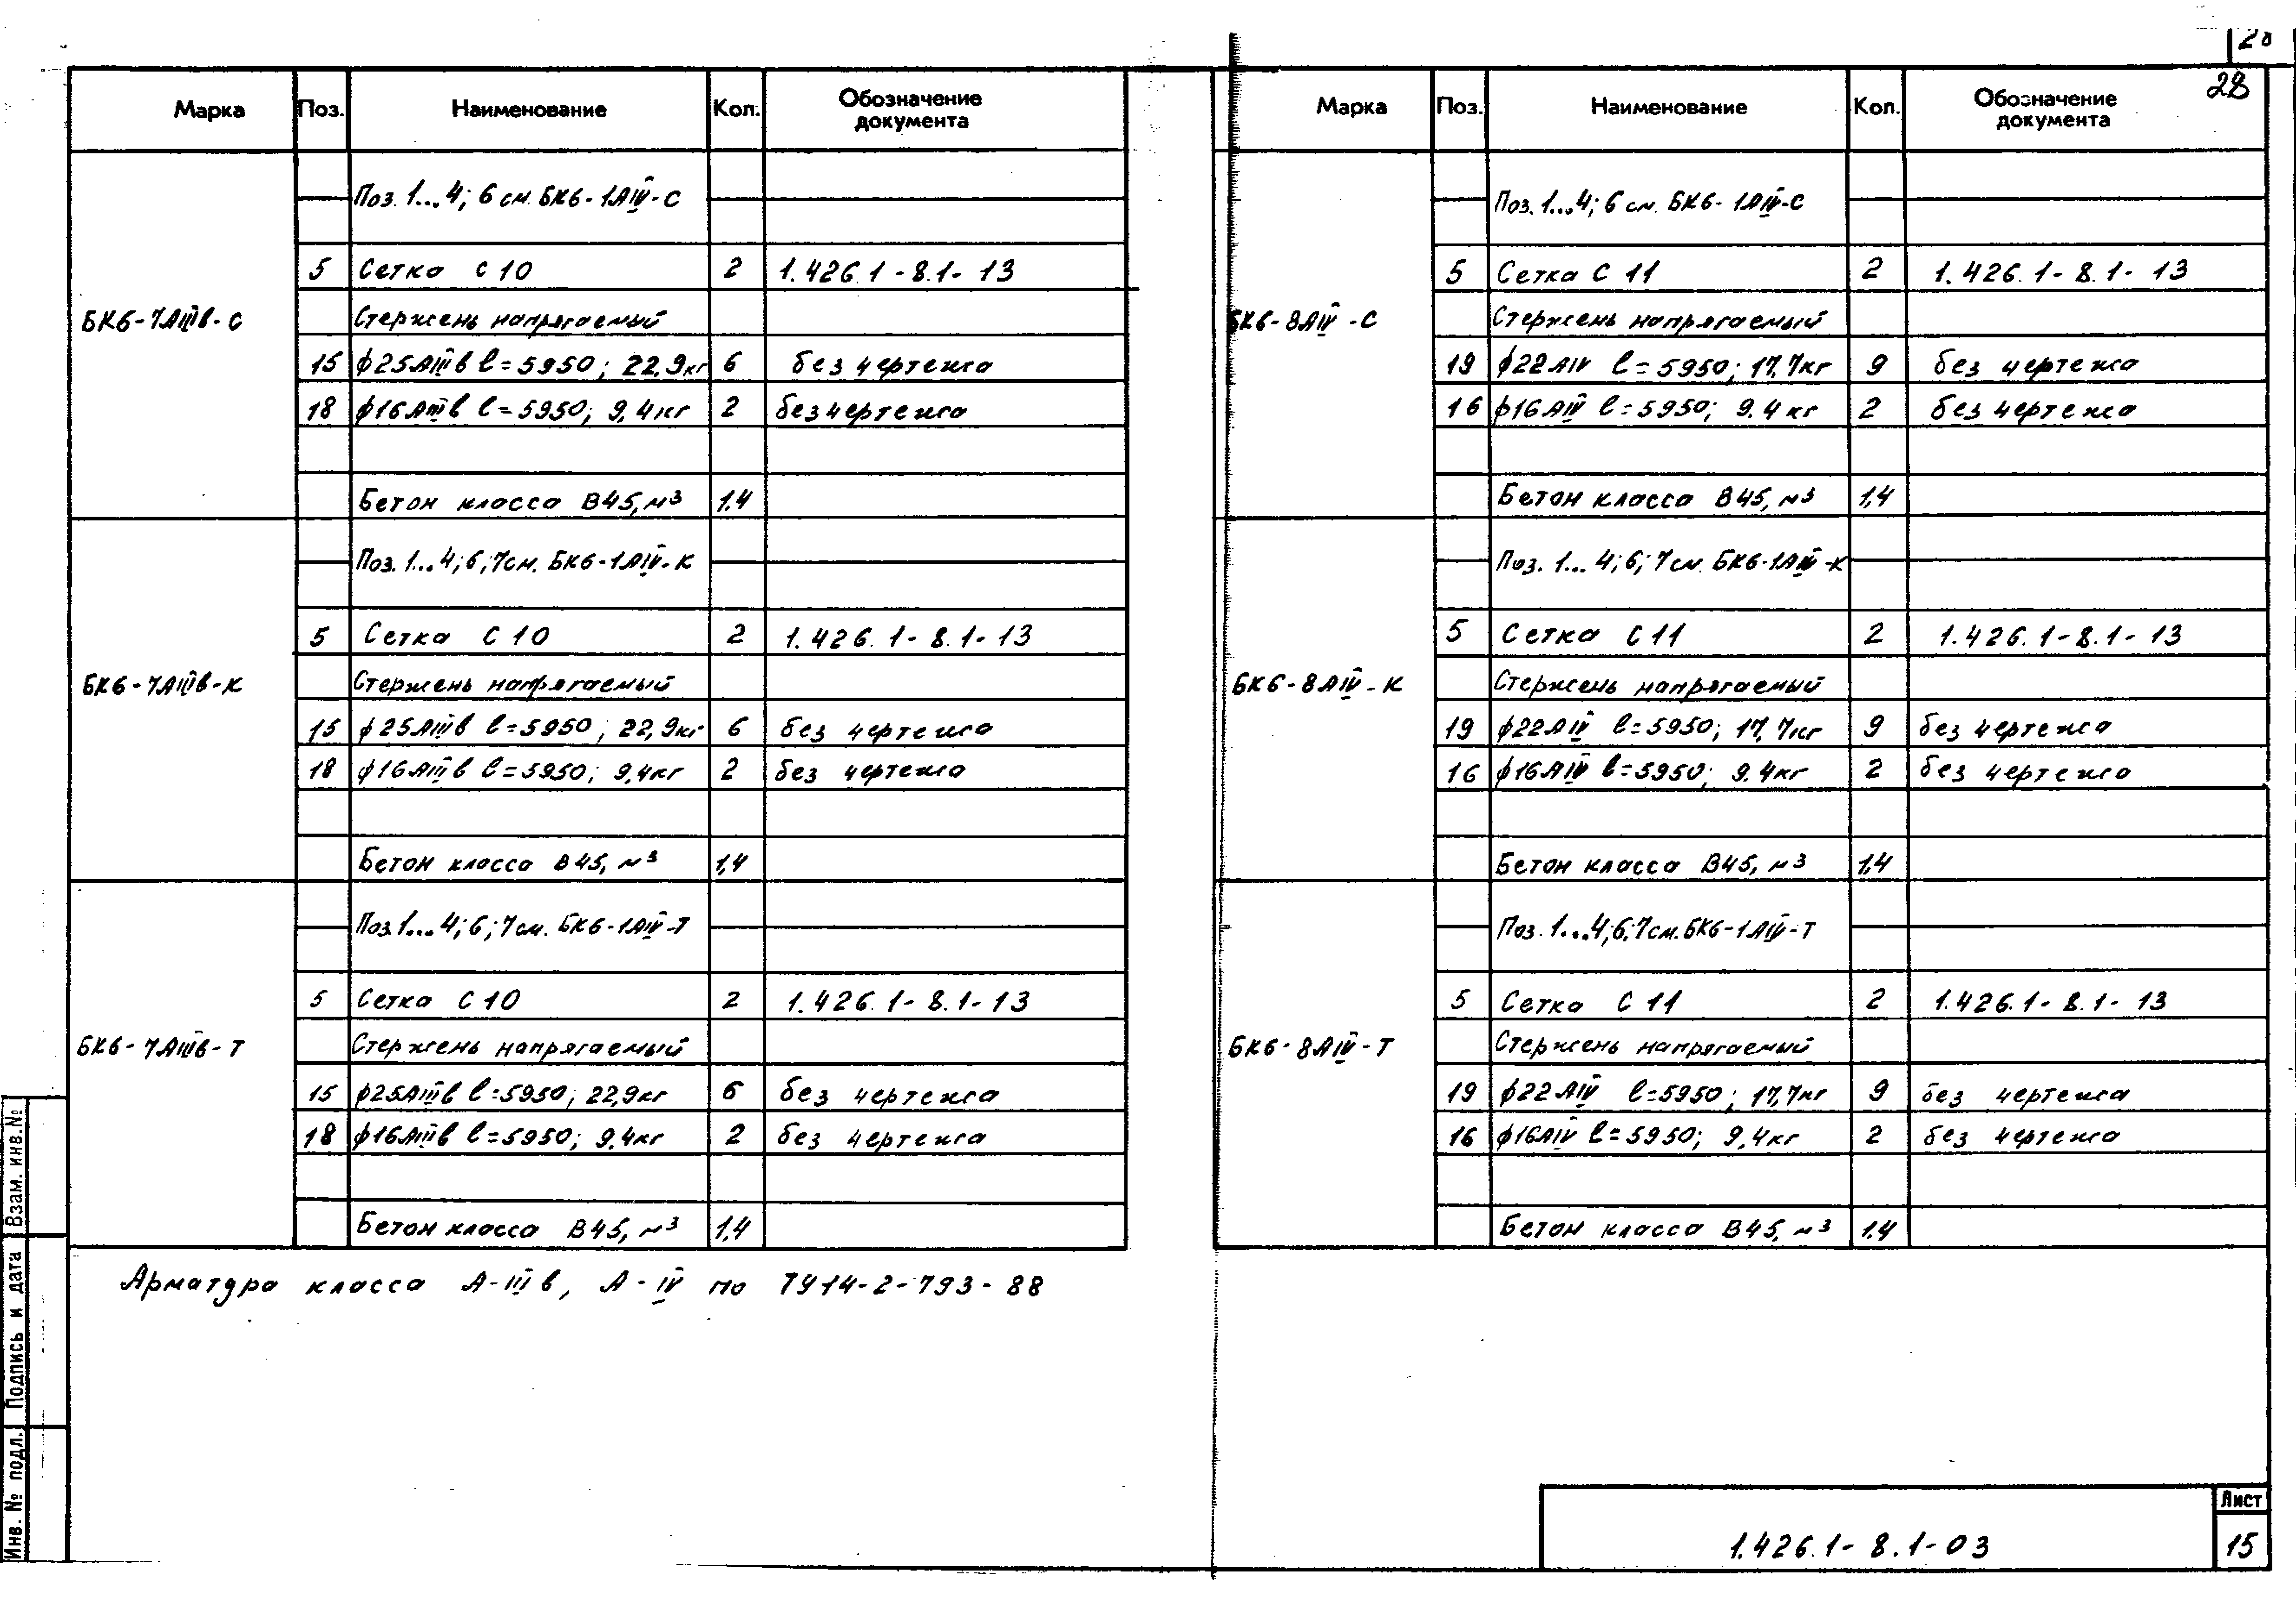 28
Марка Поз. Наименование Кол. Обозначение документа
Поз. 1...4; 6 см. БК6-1АIV-С
5 Сетка С 10 2 1.426.1-8.1-13
БК6-7АIIIв-С
Стержень напрягаемый
15 ф25АIIIв l=5950; 22.9кг 6 без чертежа
18 ф16АIIIв l=5950; 9.4кг 2 без чертежа
Бетон класса В45, м³ 1.4
Поз. 1...4; 6; 7 см. БК6-1АIV-К
5 Сетка С 10 2 1.426.1-8.1-13
БК6-7АIIIв-К
Стержень напрягаемый
15 ф25АIIIв l=5950; 22,9кг 6 без чертежа
18 ф16АIIIв l=5950; 9,4кг 2 без чертежа
Бетон класса В45, м³ 1,4
Поз. 1...4; 6; 7 см. БК6-1АIV-Т
5 Сетка С 10 2 1.426.1-8.1-13
БК6-7АIIIв-Т
Стержень напрягаемый
15 ф25АIIIв l=5950; 22,9кг 6 без чертежа
18 ф16АIIIв l=5950; 9.4кг 2 без чертежа
Бетон класса В45, м³ 1,4
Арматура класса А-IIIв, А-IV по ТУ14-2-793-88
Марка Поз. Наименование Кол. Обозначение документа
28
Поз. 1...4; 6 см. БК6-1АIV-С
5 Сетка С 11 2 1.426.1-8.1-13
БК6-8АIV-С
Стержень напрягаемый
19 ф22АIV l=5950; 17.7кг 9 без чертежа
16 ф16АIV l=5950; 9.4кг 2 без чертежа
Бетон класса В45, м³ 1,4
Поз. 1...4; 6; 7 см. БК6-1АIV-К
5 Сетка С 11 2 1.426.1-8.1-13
БК6-8АIV-К
Стержень напрягаемый
19 ф22АIV l=5950; 17,7кг 9 без чертежа
16 ф16АIV l=5950; 9.4кг 2 без чертежа
Бетон класса В45, м³ 1,4
Поз. 1...4; 6; 7 см. БК6-1АIV-Т
5 Сетка С 11 2 1.426.1-8.1-13
БК6-8АIV-Т
Стержень напрягаемый
19 ф22АIV l=5950; 17,7кг 9 без чертежа
16 ф16АIV l=5950; 9,4кг 2 без чертежа
Бетон класса В45, м³ 1.4
Инв. № подл. Подпись и дата Взам. инв. №
1.426.1-8.1-03
Лист
15